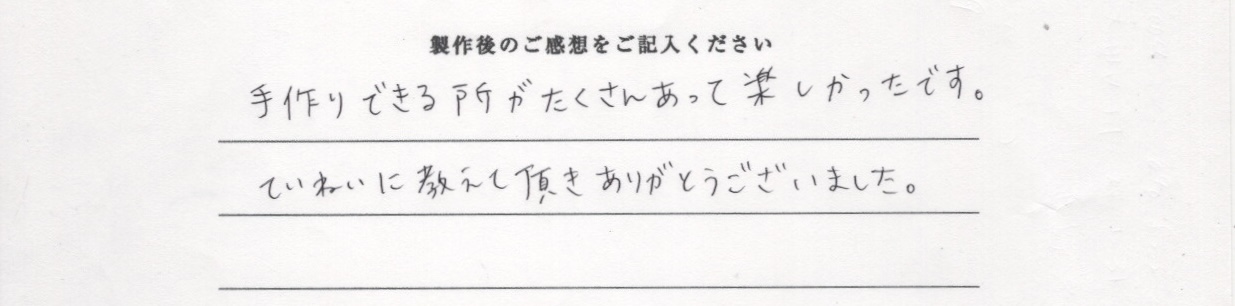 製作後のご感想をご記入ください
手作りできる所がたくさんあって楽しかったです。
ていねいに教えて頂きありがとうございました。